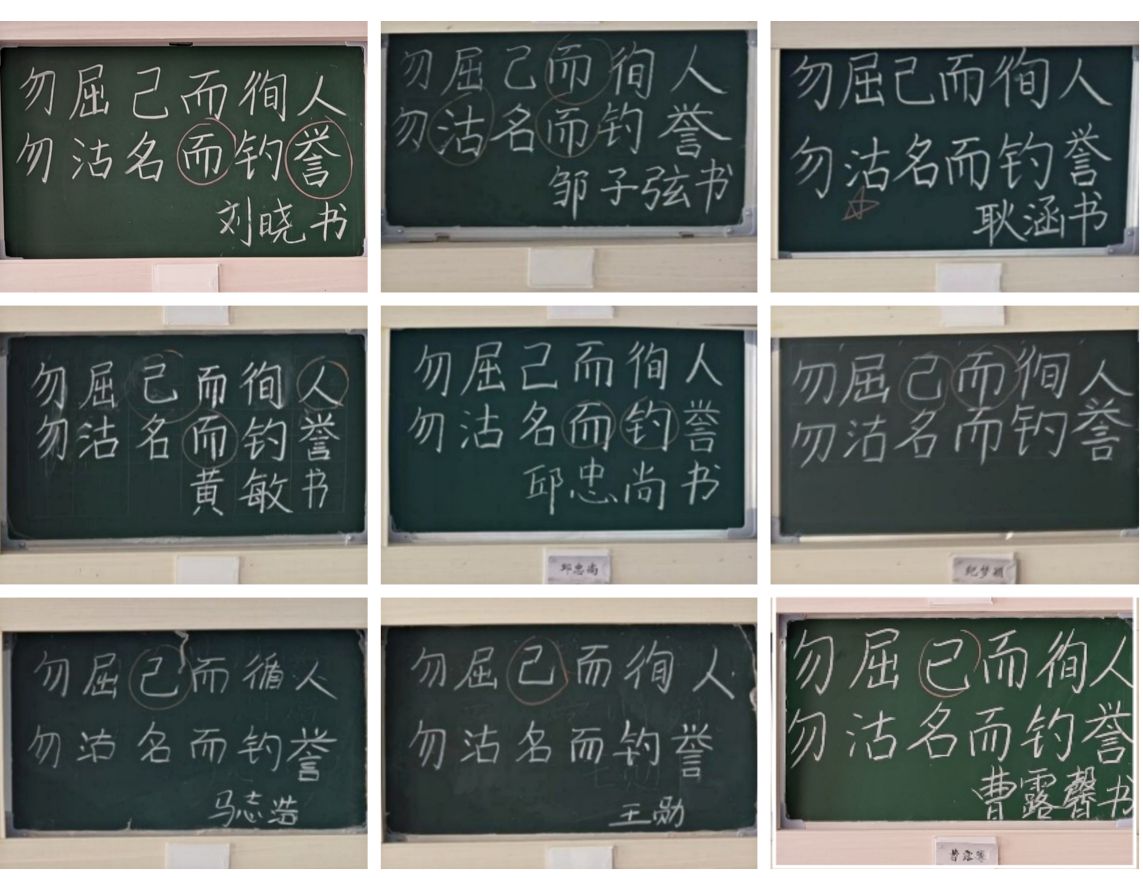 勿屈己而徇人
勿沽名而钓誉
刘晓书
勿屈己而徇人
勿沽名而钓誉
邹子弦书
勿屈己而徇人
勿沽名而钓誉
耿涵书
勿屈己而徇人
勿沽名而钓誉
黄敏书
勿屈己而徇人
勿沽名而钓誉
邱忠尚书
邱忠尚
勿屈己而徇人
勿沽名而钓誉
纪梦颖
勿屈己而循人
勿沽名而钓誉
马志浩
勿屈己而徇人
勿沽名而钓誉
王勋
勿屈己而徇人
勿沽名而钓誉
曹露馨书
曹露馨